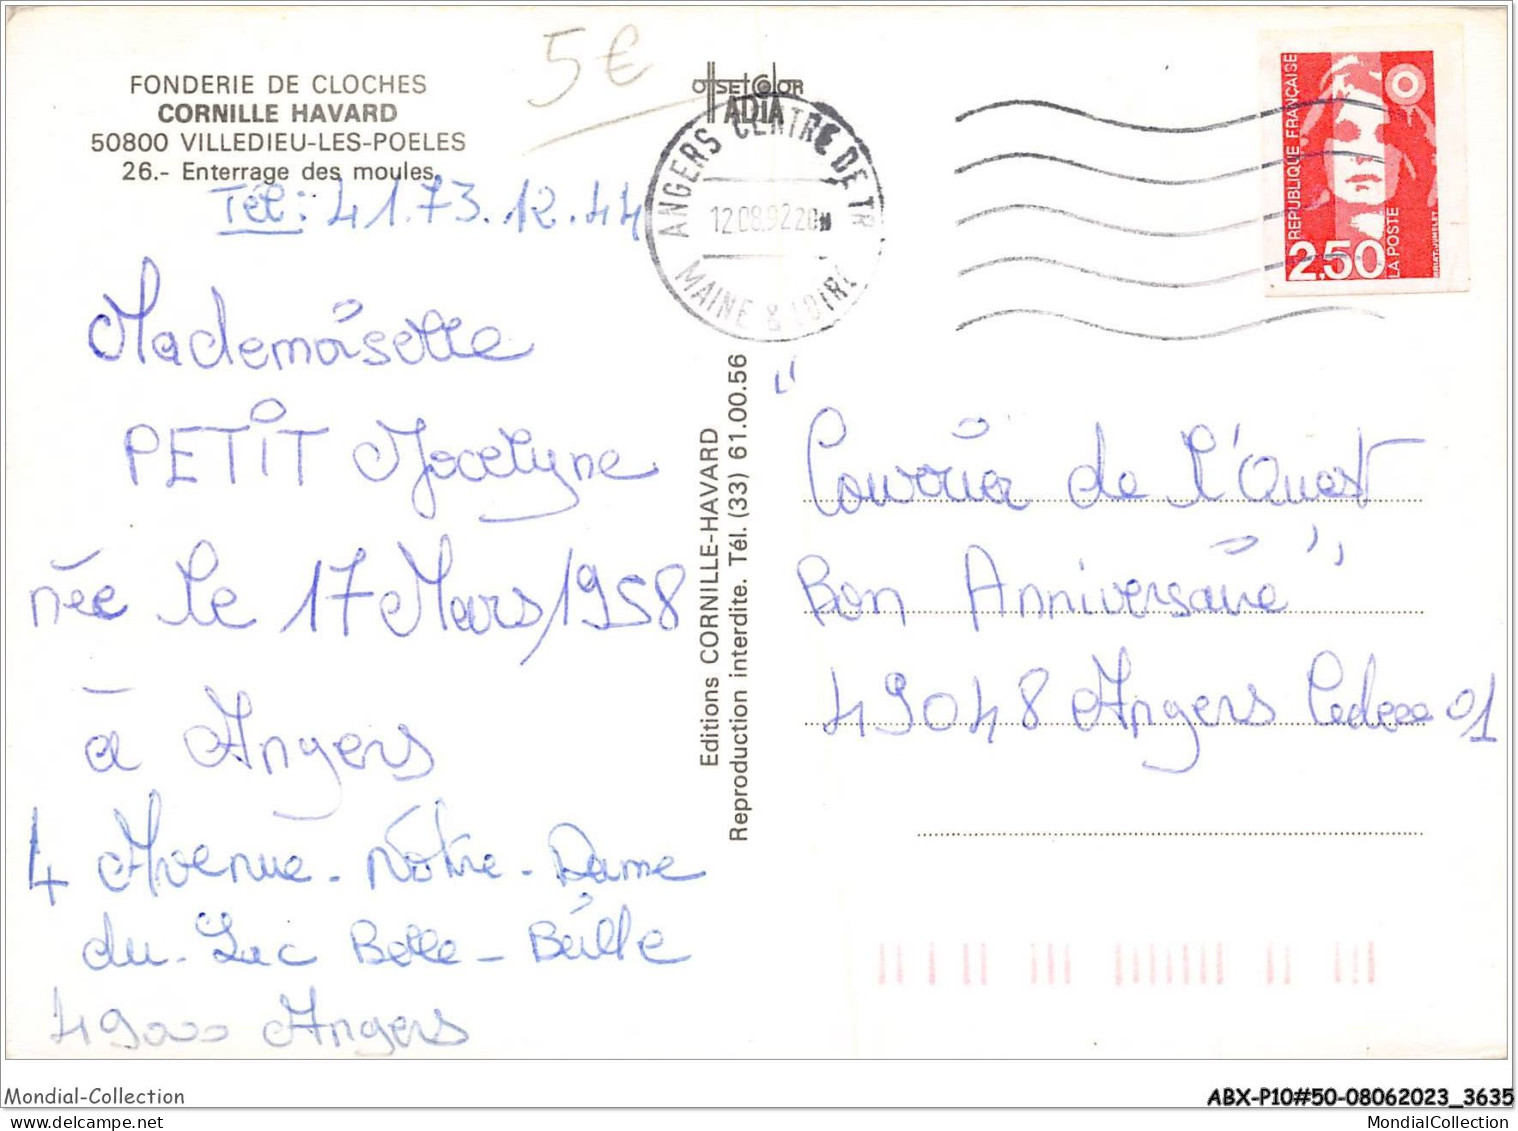 FONDERIE DE CLOCHES
CORNILLE HAVARD
50800 VILLEDIEU-LES-POELES
26.- Enterrage des moules.
5€
OFFSET COLOR
ADIA
ANGERS CENTRE DE TR
12.08.92 20
MAINE & LOIRE
REPUBLIQUE FRANÇAISE
2,50
LA POSTE
BRIAT-JUMELET
Tél: 41.73.12.44
Mademoiselle
PETIT Jocelyne
née le 17 Mars 1958
à Angers
4 Avenue-Notre-Dame
du-Lac Belle-Beille
49000 Angers
Editions CORNILLE-HAVARD
Reproduction interdite. Tél. (33) 61.00.56
"
Courrier de l'Ouest
Bon Anniversaire"
49048 Angers Cedex 01
Mondial-Collection
ABX-P10#50-08062023_3635
MondialCollection